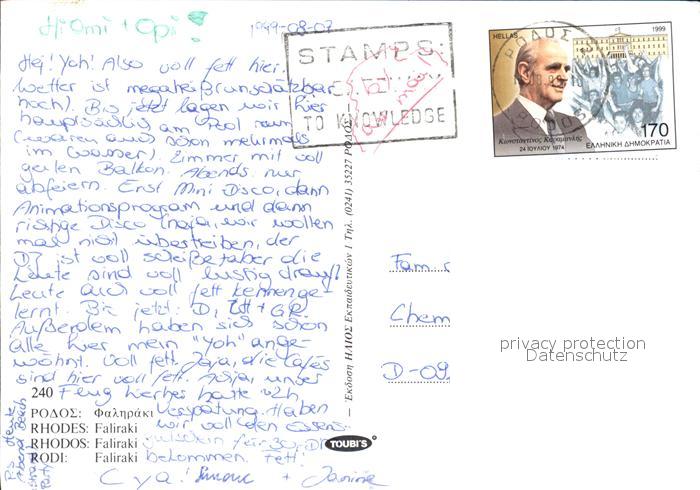 Hi Omi + Opi!
1999-08-07
Hej! Yoh! Also voll fett hier.
Wetter ist megaheiß (unschätzbar
hoch). Bis jetzt lagen wir hier
hauptsächlich am Pool rum
(waren auch schon mehrmals
im Wasser). Zimmer mit voll
geilen Balkon. Abends nur
abfeiern. Erst Mini Disco, dann
Animationsprogram und dann
richtige Disco (naja, wir wollen
mal nicht übertreiben, der
DJ ist voll scheiße) aber die
Leute sind voll lustig drauf!
Leute auch voll fett kennenge-
lernt. Bis jetzt: D, + GR.
Außerdem haben sich schon
alle hier mein "Yoh" ange-
wöhnt. Voll fett. Jaja, die Cafés
sind hier voll fett. Achja, unser
Flug hatte 2h
Verspätung. Haben
wir voll den Essens-
gutschein für 30,-DM
bekommen. Fett!
Cya! Simone + Janine
PS: Heute
Abend Beach
Party
STAMPS:
TO KNOWLEDGE
HELLAS
1999
ΡΟΔΟΣ
Κωνσταντίνος Καραμανλής
24 ΙΟΥΛΙΟΥ 1974
170
ΕΛΛΗΝΙΚΗ ΔΗΜΟΚΡΑΤΙΑ
Έκδοση ΗΛΙΟΣ Εκπαιδευτικών 1 Τηλ. (0241) 35227 ΡΟΔΟΣ
Fam.
Chem
D-09
privacy protection
Datenschutz
240
ΡΟΔΟΣ: Φαληράκι
RHODES: Faliraki
RHODOS: Faliraki
RODI: Faliraki
TOUBI'S